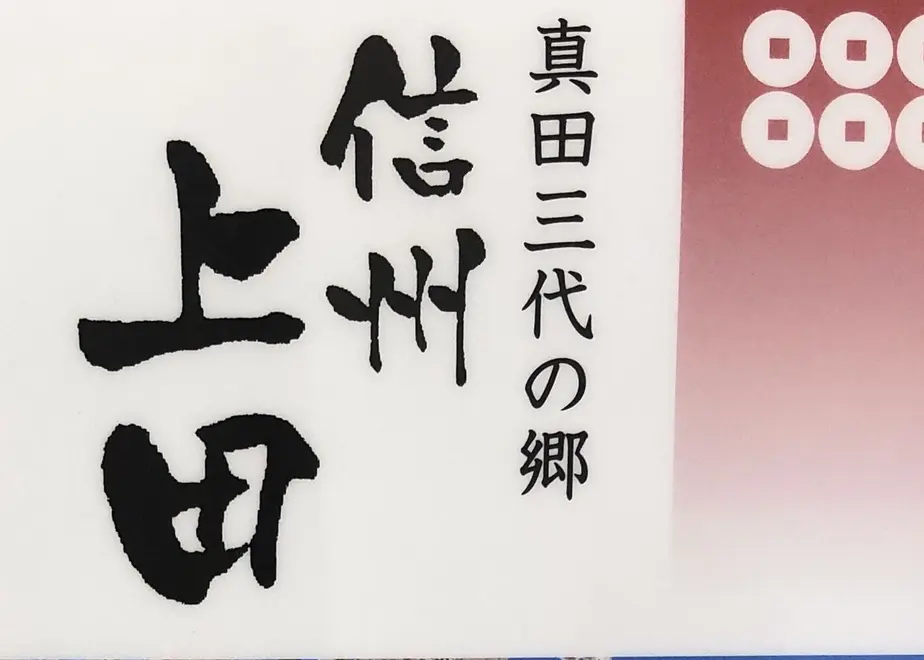 真田三代の郷
信州
上田